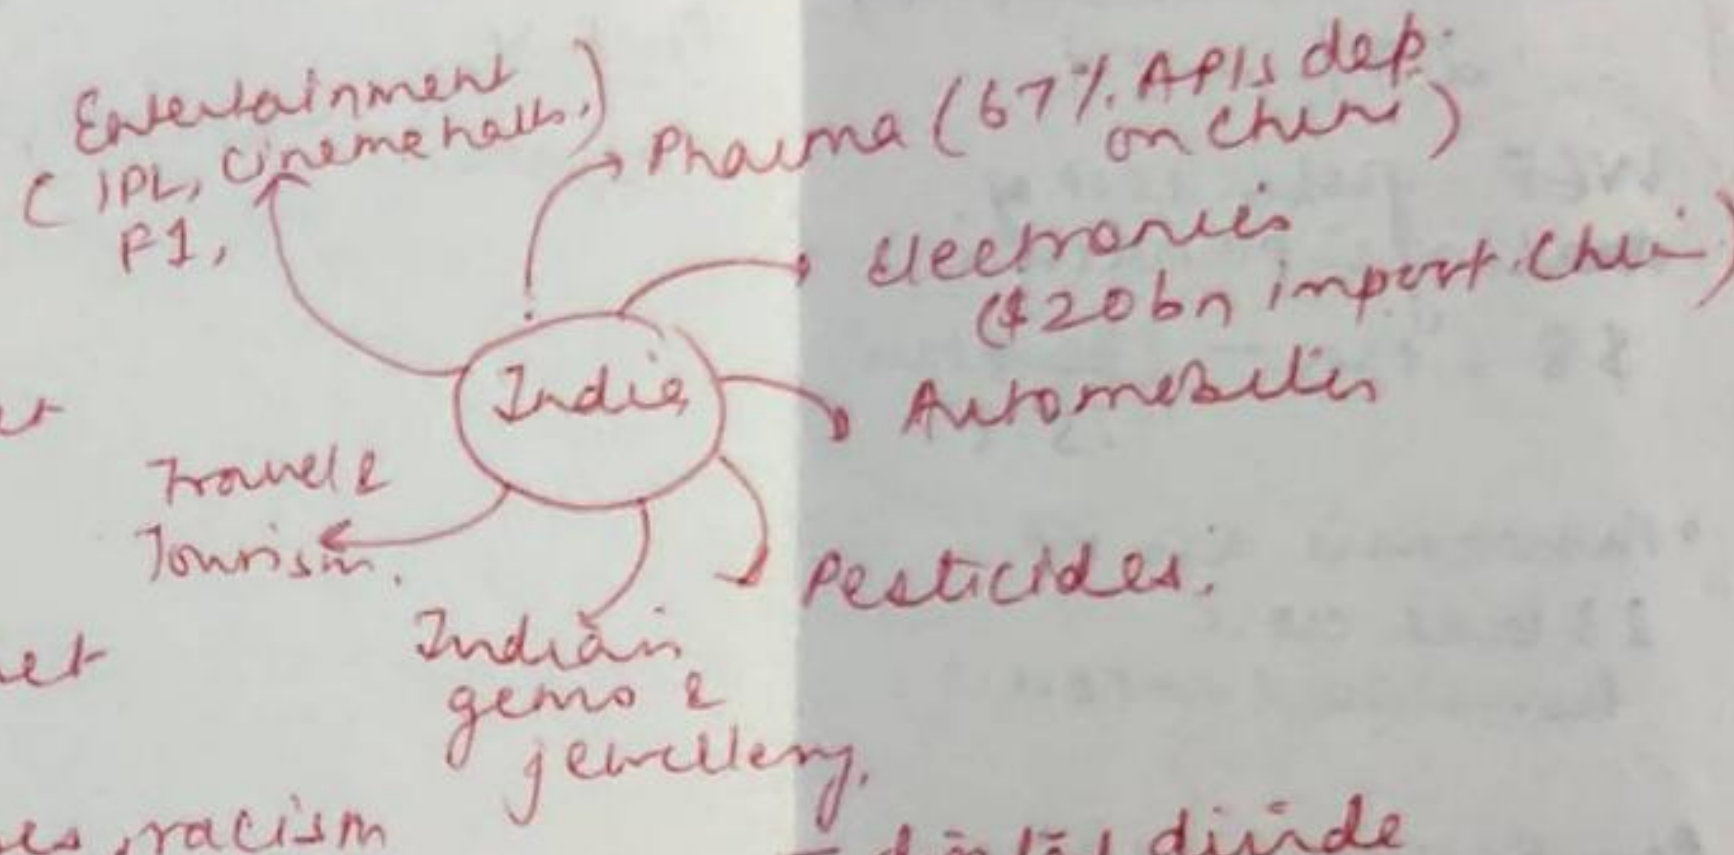 Entertainment
(IPL, Cinema halls.)
F1,
Pharma (67% APIs dep.
on China)
Electronics
($20bn import China)
India
Automobiles
Travel &
Tourism.
Pesticides.
Indian
gems &
jewellery.
racism
digital divide